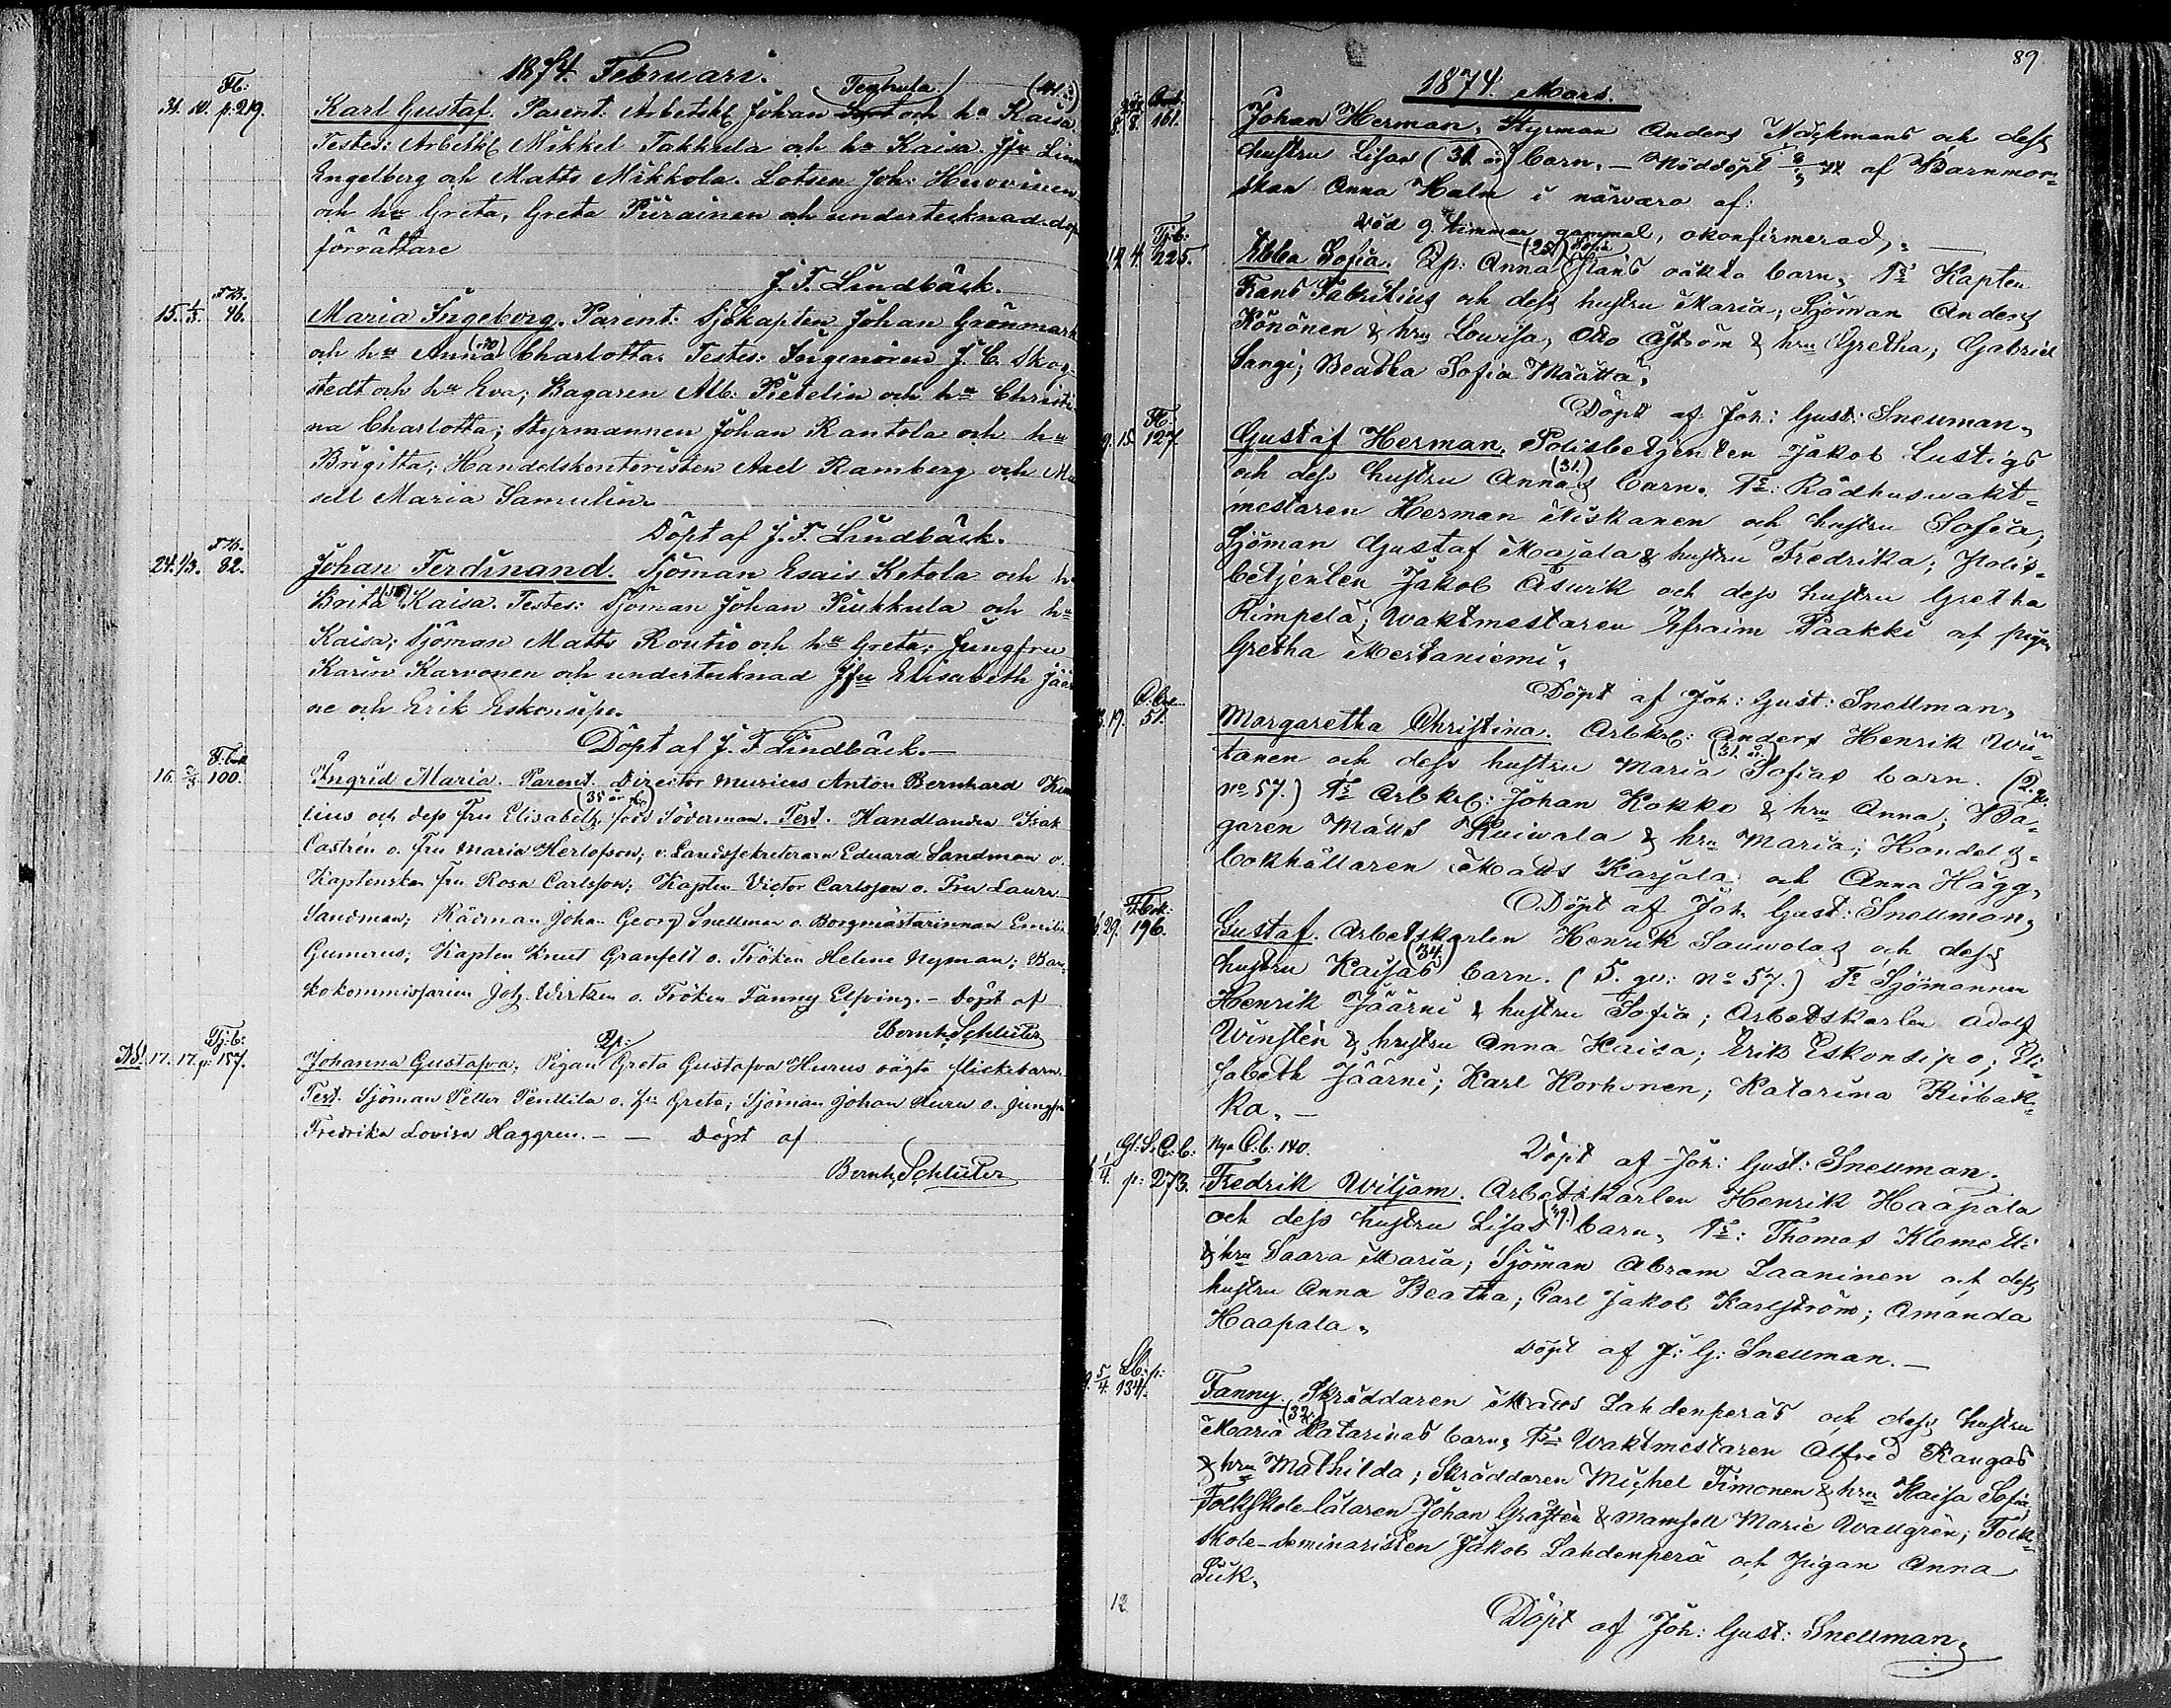 1874. Februari.
Fb:
31. 10. p. 219. Karl Gustaf. Parent: Arbetsk Johan och hu Kaisa
Testes: Arbetsk Mikkel Takkula och hu Kaisa. Jfr
Engelberg och Matts Mikkola. Lotsen Joh: Huovinen
och hu Greta, Greta Piirainen och undertecknad dop
förrättare
J. F. Lindbäck.
15. 1/3. 46. Maria Ingeborg. Parent: Sjökapten Johan Grönmark
och hu Anna (40) Charlotta. Testes: Ingeniören J. C. Skog
stedt och hu Eva; Bagaren Alb: Pietelin och hu Christi
na Charlotta; Styrmannen Johan Rantola och hu
Brigitta; Handelskontoristen Axel Ramberg och M
sell Maria Samulin
Döpt af J. F. Lindbäck.
24. 1/3. 82. Johan Ferdinand. Sjöman Esais Ketola och h
Brita Kaisa. Testes: Sjöman Johan Piukkula och hu
Kaisa; Sjöman Matts Routio och hu Greta; Jungfru
Karin Karvonen och undertecknad Jfru Elisabeth Jäär
ne och Erik Eskonsipo.
Döpt af J. F. Lindbäck.—
16. 100. Ingrid Maria. Parent. Director musices Anton Bernhard
lius och dess fru Elisabeth (35 år) född Söderman. Test. Handlanden Isak
Castrén o. fru Maria Herlofson; v. Landssekreteraren Eduard Sandman o.
Kaptenskan fru Rosa Carlsson; Kapten Victor Carlsson o. Fru Laura
Sandman; Rådman Johan Georg Snellman o. Borgmästarinnan Emilia
Gumerus; Kapten Knut Granfelt o. Fröken Helene Nyman; Ban
kokommissarien Joh. Wirtzen o. Fröken Fanny Elfving. — Döpt af
Bernh. Schlüter
Tj.b:
17. 17. p. 157. Johanna Gustafva; Pigan Greta Gustafva Hurus oägta flickebarn.
Test. Sjöman Petter Penttila o. hu Greta; Sjöman Johan Auru o. Jungfru
Fredrika Lovisa Haggren. — — Döpt af
Bernh. Schlüter
89
1874. Mars.
8. 8. 161. Johan Herman, Styrman Anders Näckmans och dess
hustru Lisas (31 år) barn. — Nöddöpt 8/3 74 af Barnmor=
skan Anna Halm i närvaro af:
död 9 timmar gammal, okonfirmerad,. —
Tj.b:
4. 225. Ebba Sofia. Qp: Anna (25) Sofia oäkta barn, Ts Kapten
Frans Fabritius och dess hustru Maria; Sjöman Anders
Könönen & hru Lowisa, Otto Åström & hru Gretha; Gabriel
Sangi; Beatha Sofia Määttä.
Döpt af Joh: Gust: Snellman,
9. 15. 127. Gustaf Herman. Polisbetjenten Jakob Lustigs
och dess hustru Annas (31.) barn. Ts: Rådhuswakt=
mestaren Herman Niskanen och hustru Sofia;
Sjöman Gustaf Majala & hustru Fredrika; Polis=
betjenten Jakob Asurik och dess hustru Gretha
Rimpelä; Waktmestaren Efraim Paakki och pigan
Gretha Mertaniemi.
Döpt af Joh: Gust: Snellman,
19. 51. Margaretha Christina. Arbkrl: Anders Henrik Wii=
tanen och dess hustru Maria (31 å) Sofias barn. (2. qv.
No 57.) Ts Arbkrl: Johan Kokko & hru Anna; Ba=
garen Matts Kuiwala & hru Maria; Handels=
bokhållaren Matts Karjala och Anna Hägg,
Döpt af Joh. Gust: Snellman,
29. 196. Gustaf. Arbetskarlen Henrik Sauwolas och dess
hustru Kaisas (34.) barn. (5. qv: No 57.) Ts Sjömannen
Henrik Jäärni & hustru Sofia; Arbetskarlen Adolf
Winstén & hustru Anna Kaisa; Erik Eskonsipo; Eli=
sabeth Jäärni; Karl Korhonen; Katarina Riibak=
ka. —
Döpt af Joh: Gust: Snellman.
Nya A.b: 140.
1/4. p: 273. Fredrik Wiljam. Arbetskarlen Henrik Haapala
och dess hustru Lisas (39.) barn, Ts: Thomas Klemetti
& hru Saara Maria; Sjöman Abram Laaninen och dess
hustru Anna Beatha; Carl Jakob Karlström; Amanda
Haapala.
Döpt af J: G: Snellman.—
9. 5/4. 134. Fanny. Skräddaren Matts Lahdenperäs och dess hustru
Maria (32.) Katarinas barn, Ts: Waktmestaren Alfred Kangas
& hru Mathilda; Skräddaren Michel Timonen & hru Kaisa Sofia;
Folkskole-läraren Johan Grästén & Mamsell Marie Wallgrén; Folk=
skole-seminaristen Jakob Lahdenperä och Pigan Anna
Tuk,
12
Döpt af Joh: Gust: Snellman,